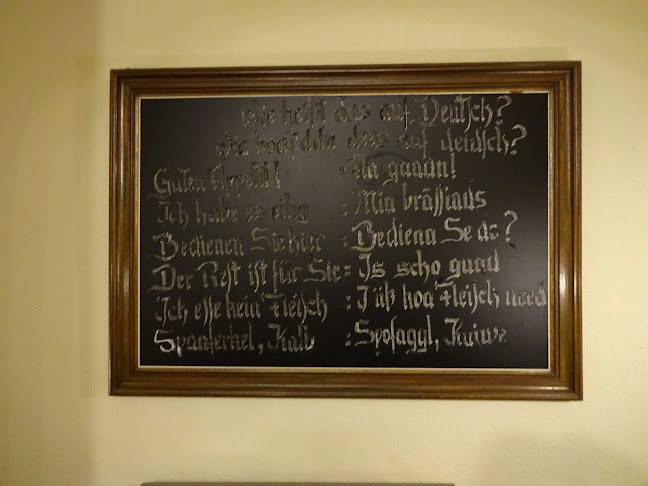 Wie heißt das auf Deutsch?
auf deidsch?
Guten Appetit! : An guadn!
Ich habe es eilig :
Bedienen Sie hier : Bedienn Se do?
Der Rest ist für Sie = Is scho guad
Ich esse kein Fleisch : I äß koa Fleisch need
Spanferkel, Kalb : Spofagyl,